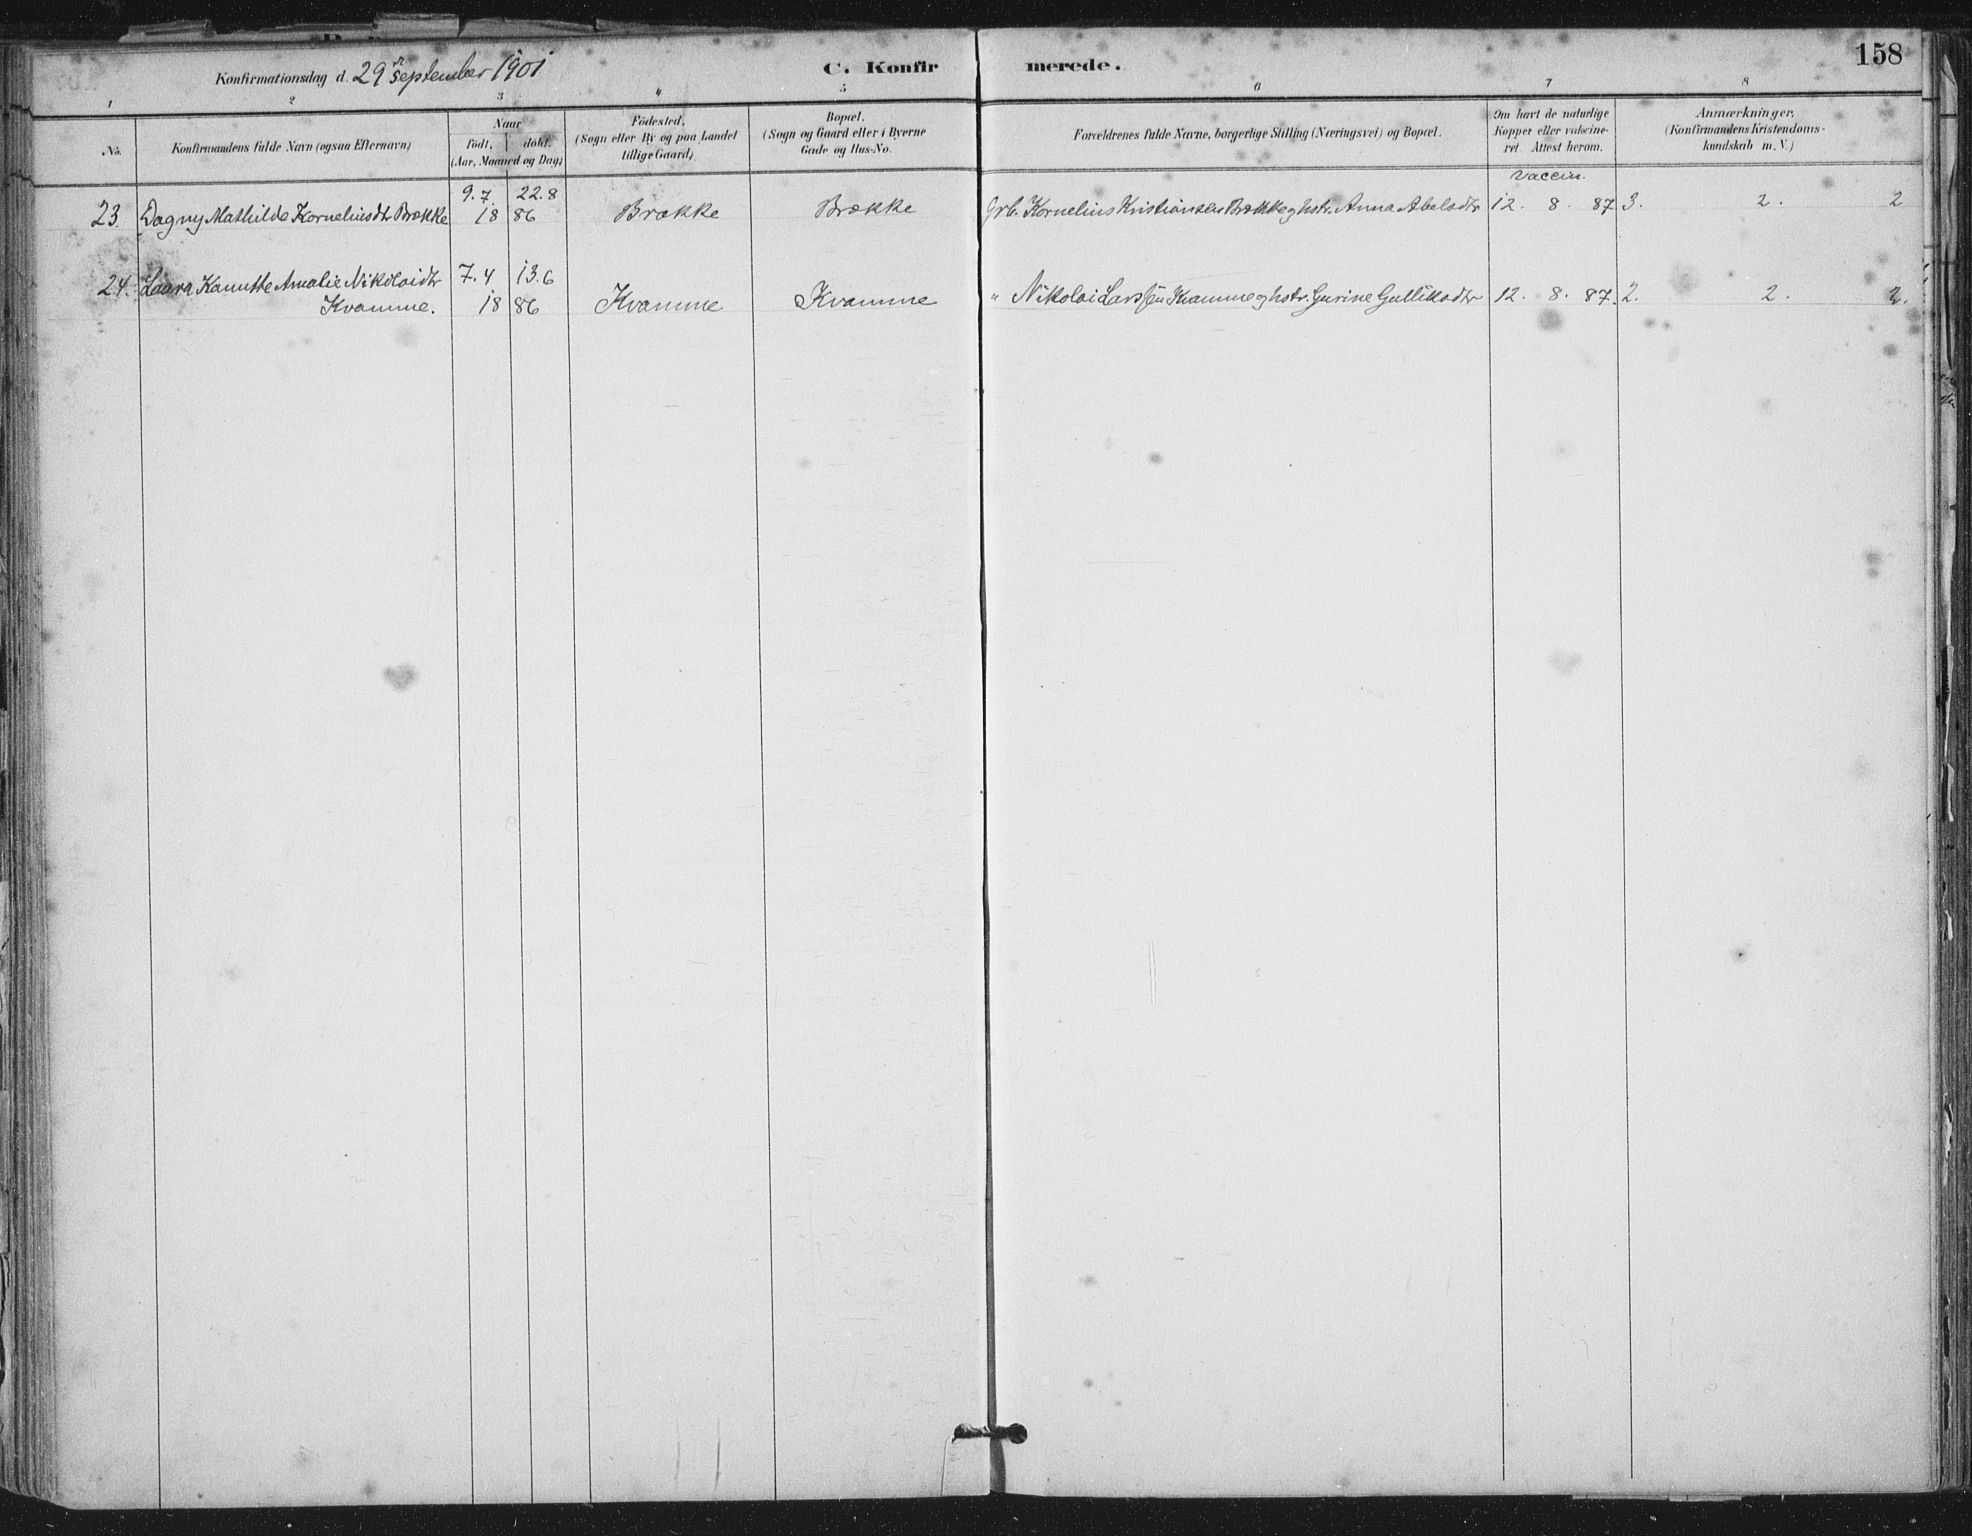 158
Konfirmationsdag d. 29 September 1901
C. Konfir merede.
1 2 3 4 5 6 7 8
No.
Konfirmandens fulde Navn (ogsaa Efternavn)
Naar
født, døbt.
(Aar, Maaned og Dag)
Födested.
(Sogn eller By og paa Landet
tillige Gaard)
Bopæl.
(Sogn og Gaard eller i Byerne
Gade og Hus-No.
Forældrenes fulde Navne, borgerlige Stilling (Næringsvei) og Bopæl.
Om havt de naturlige
Kopper eller vaksine-
ret. Attest herom.
Anmærkninger.
(Konfirmandens Kristendoms-
kundskab m. V.)
Vaccin.
9.7. 22.8
23. Dagny Mathilde Korneliusdtr Brække 18 86 Brække Brække Grb. Kornelius Kristiansen Brække og hstr. Anna Abelsdtr 12. 8. 87 3. 2. 2
24. Laura Kanutte Amalie Nikolaidtr 7.4 13.6
Kvamme. 18 86 Kvamme Kvamme " Nikolai Larssen Kvamme og hstr. Gurine Gulliksdtr 12. 8. 87. 2. 2. 2.